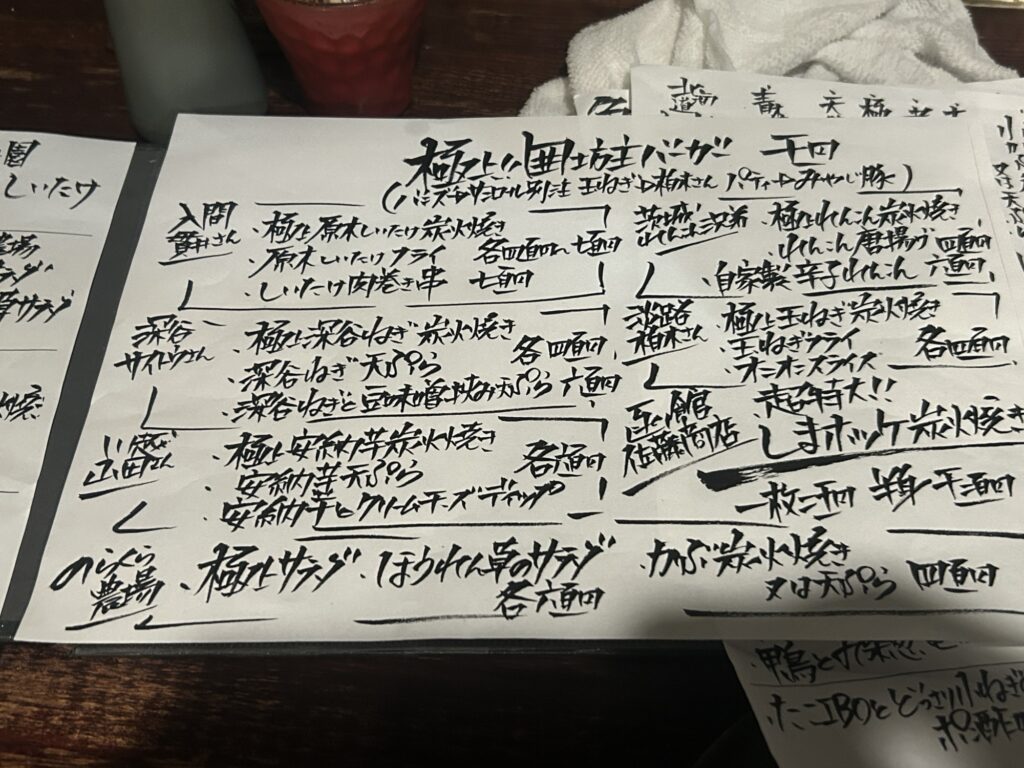 極上!! 囲坊主バーガー 千円
玉ねぎ→柏木さん パティ→みやじ豚)
入間
貫井さん
・極上原木しいたけ炭火焼き
・原木しいたけフライ 各四百円、七百円
・しいたけ肉巻き串 七百円
茨城
れんこん三兄弟
・極上れんこん炭火焼き
・れんこん唐揚げ 四百円
・自家製 辛子れんこん 六百円
深谷
サイトウさん
・極上深谷ねぎ炭火焼き
・深谷ねぎ天ぷら 各四百円
・深谷ねぎと豆味噌挟み天ぷら 六百円
淡路
柏木さん
・極上玉ねぎ炭火焼き
・玉ねぎフライ
・オニオンスライス 各四百円
山田さん
・極上安納芋炭火焼き
・安納芋天ぷら 各六百円
・安納芋とクリームチーズディップ
函館
佐藤商店
超特大!!
しまホッケ炭火焼き
一枚二千円 半身一千二百円
のらくら
農場
・極上サラダ ・ほうれん草のサラダ
各六百円
かぶ炭火焼き
又は天ぷら 四百円
園
しいたけ
農場
サラダ
草サラダ
北海道
青森
極
・鴨と九条ねぎと
・たこIBOとどっさり小ねぎ
ポン酢